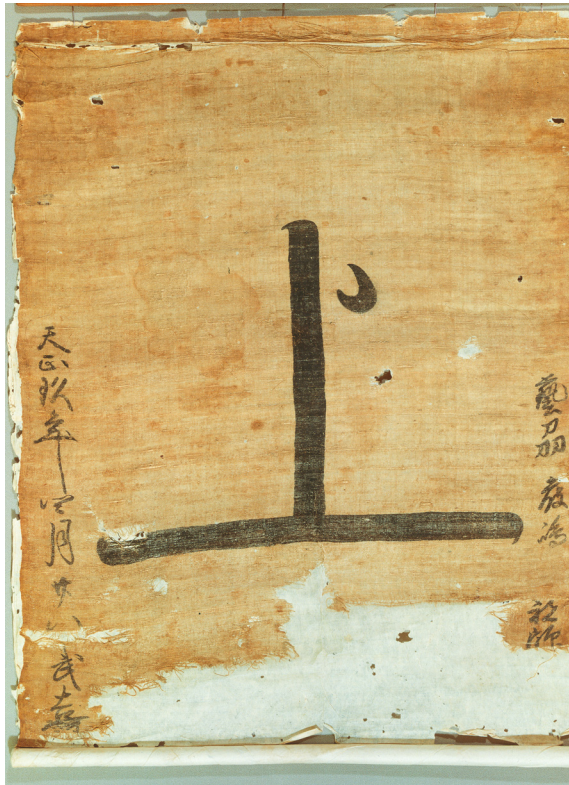 藝州 厳嶋 祝師
上
天正玖年四月廿八 武吉